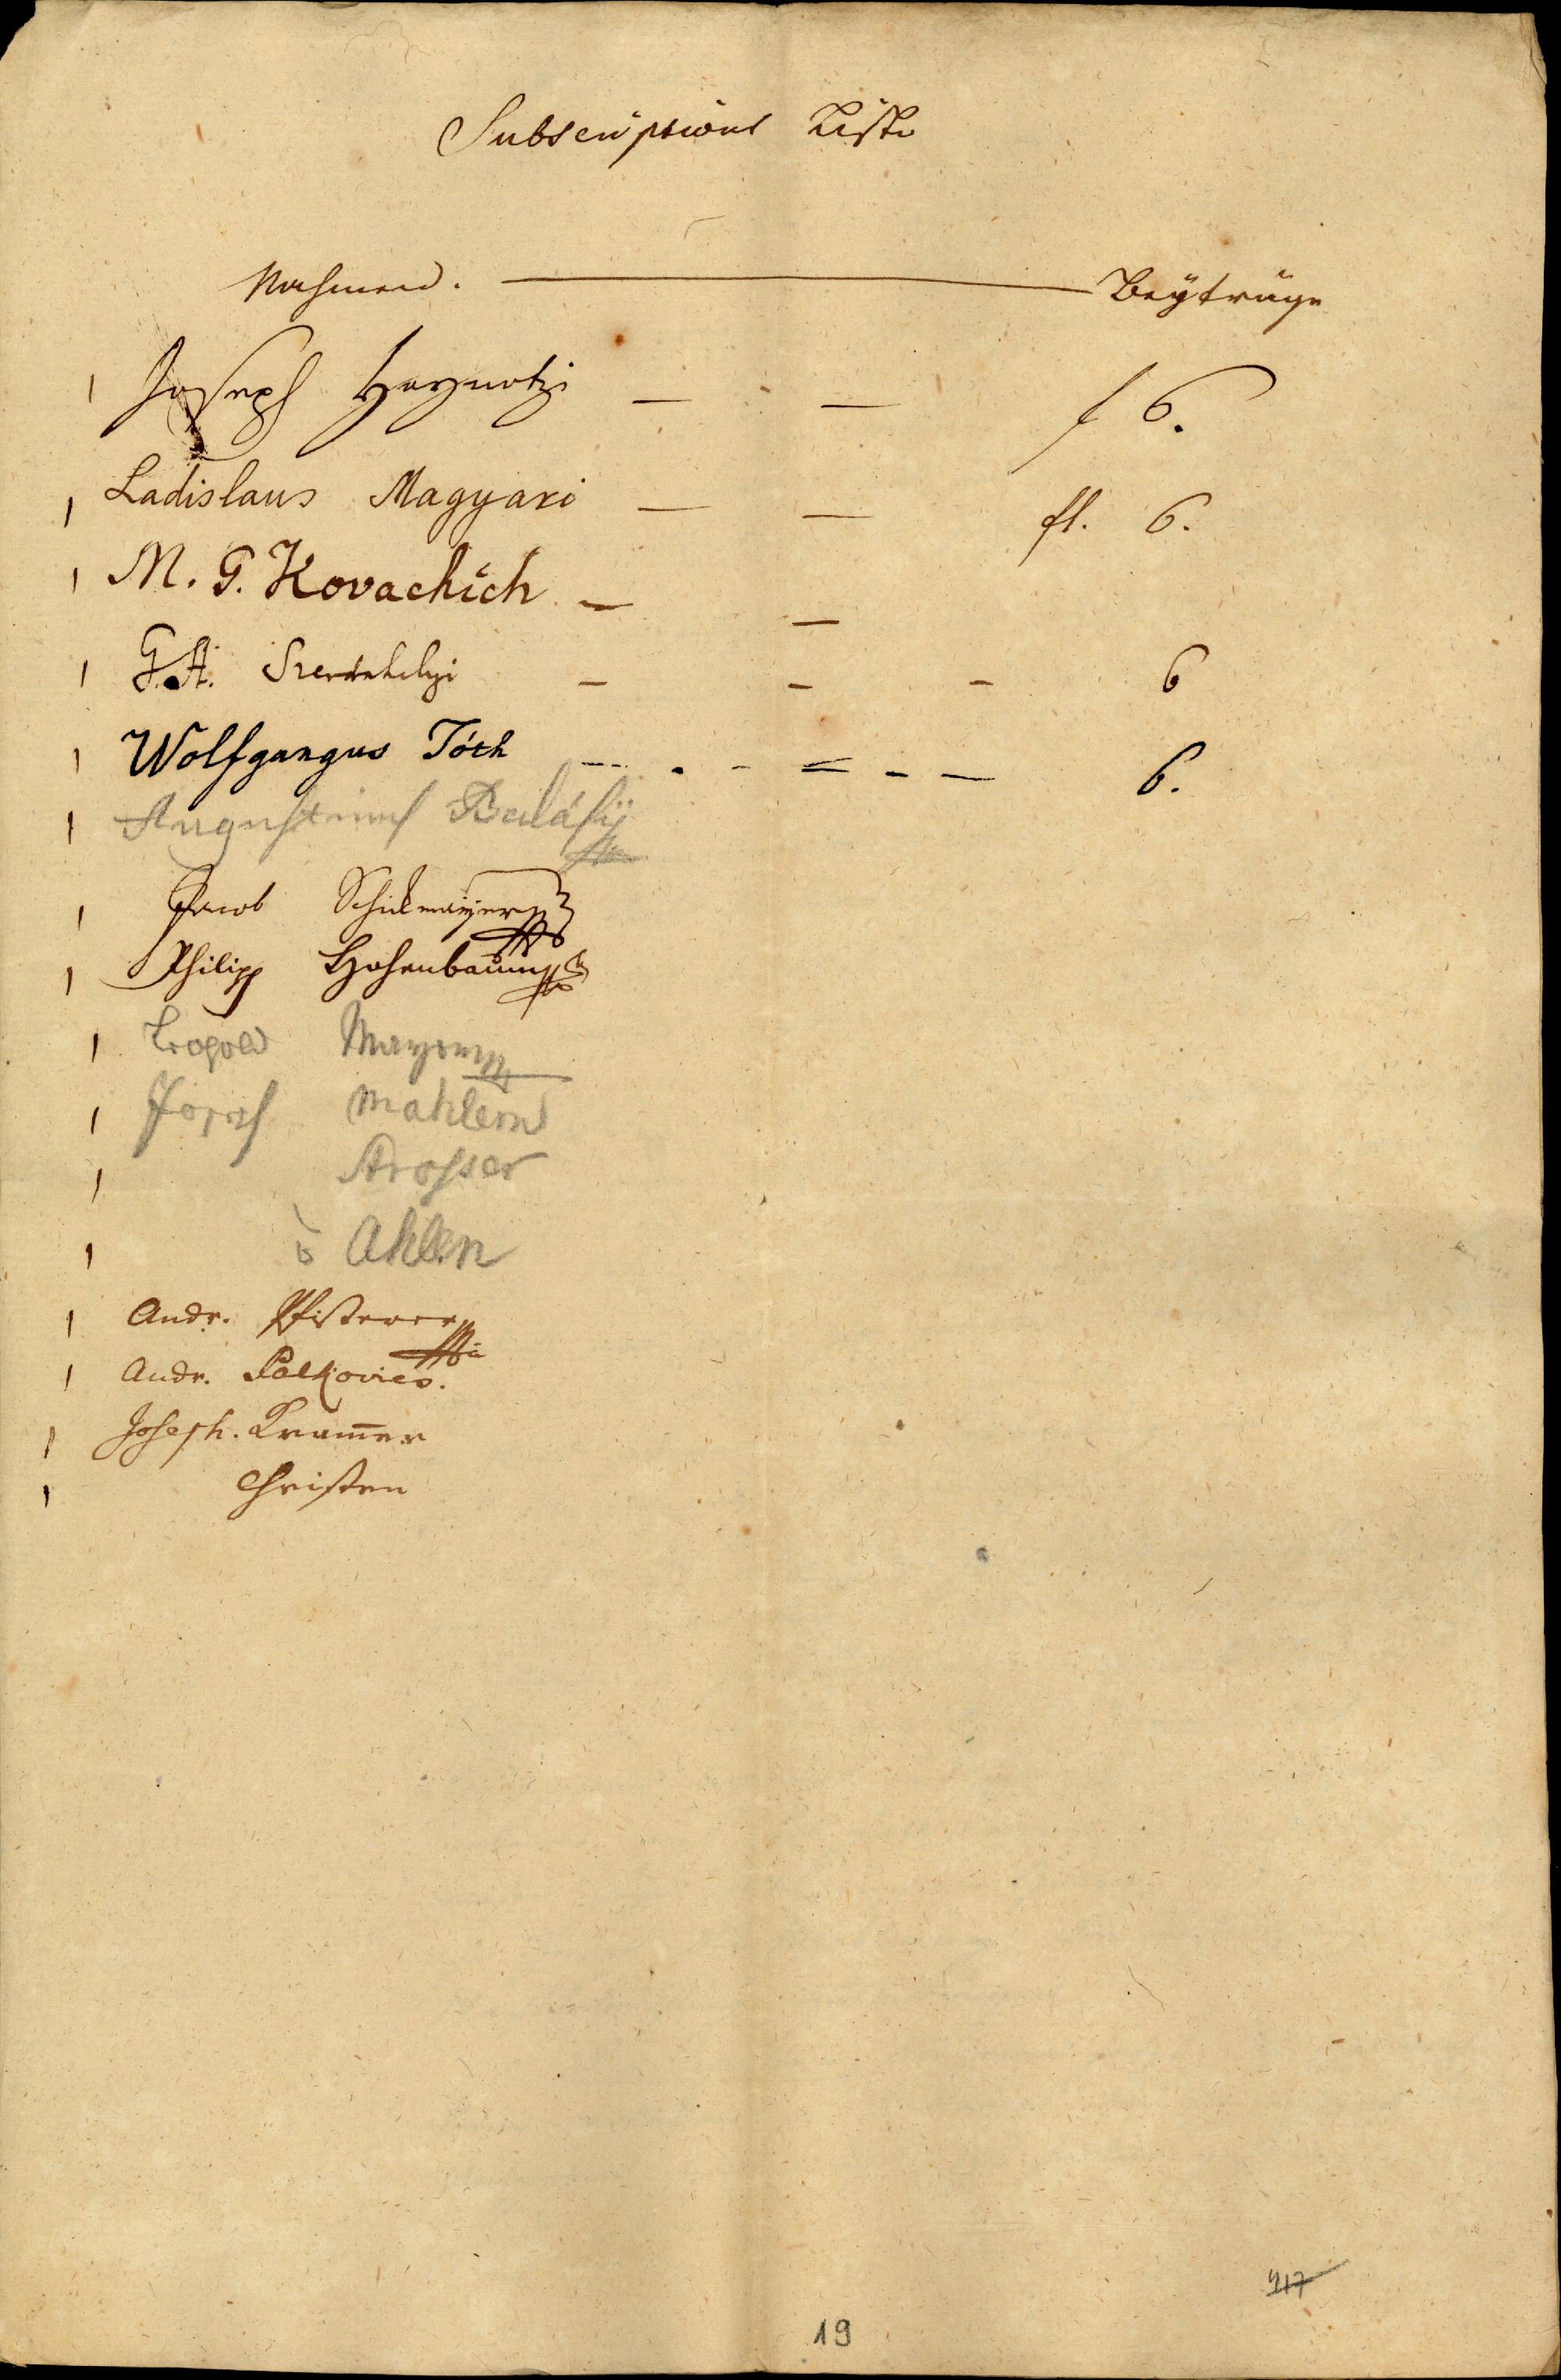 Subscriptions Liste
Nahmen. Beyträge
Joseph f 6.
Ladislaus Magyari — — fl. 6.
M. G. Kovachich — —
G. A. Szerdahelyi — — — 6
Wolfgangus Tóth 6.
Augustinus Balásÿ
Jacob Schickmayer
Philipp Hohenbaum
Leopold Mayer
Joseph Mahlern
Strosser
Ahlen
Andr. Pfisterer
Andr. Palkovics.
Joseph. Kram̅er
Christen
417
19